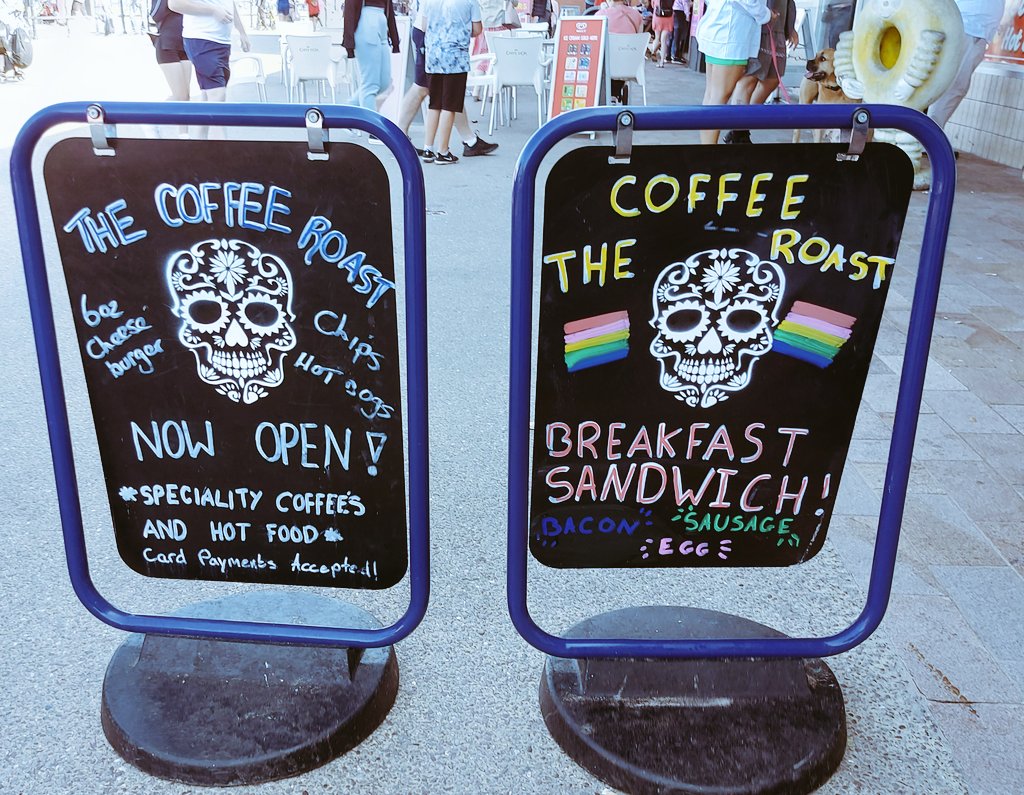 THE COFFEE ROAST
6oz
Cheese
burger
Chips
Hot Dogs
NOW OPEN!
*SPECIALITY COFFEE'S
AND HOT FOOD*
Card Payments Accepted!
COFFEE
THE ROAST
BREAKFAST
SANDWICH!
BACON SAUSAGE
EGG